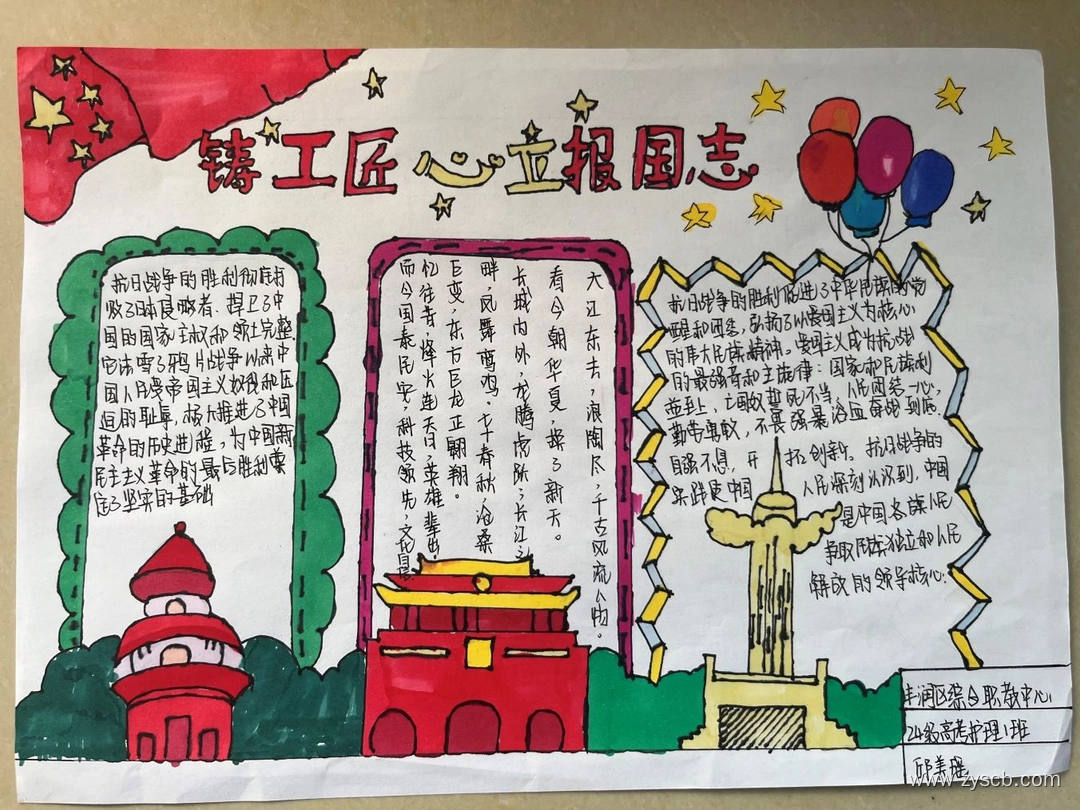 铸工匠心立报国志
抗日战争的胜利彻底打
败了日本侵略者,捍卫了中
国的国家主权和领土完整.
它洗雪了鸦片战争以来中
国人民受帝国主义奴役和压
迫的耻辱,极大推进了中国
革命的历史进程,为中国新
民主主义革命的最后胜利奠
定了坚实的基础
大江东去,浪陶尽,千古风流人物。
看今朝华夏,换了新天。
长城内外,龙腾虎跃;长江
畔,凤舞鸾鸣。七十春秋,沧桑
巨变,东方巨龙正翱翔。
忆往昔烽火连天日,英雄辈出
而今国泰民安,科技领先,文化
抗日战争的胜利促进了中华民族的觉
醒和团结,弘扬了以爱国主义为核心
的伟大民族精神。爱国主义成为抗战
的最强音和主旋律:国家和民族利
益至上,亡国奴誓死不当,人民团结一心,
勤劳勇敢,不畏强暴浴血奋战到底,
自强不息,开拓创新,抗日战争的
实践使中国人民深刻认识到,中国
是中国各族人民
争取民族独立和人民
解放的领导核心.
丰润区综合职教中心
24级高考护理1班
邱美瑶
www.zyscb.com